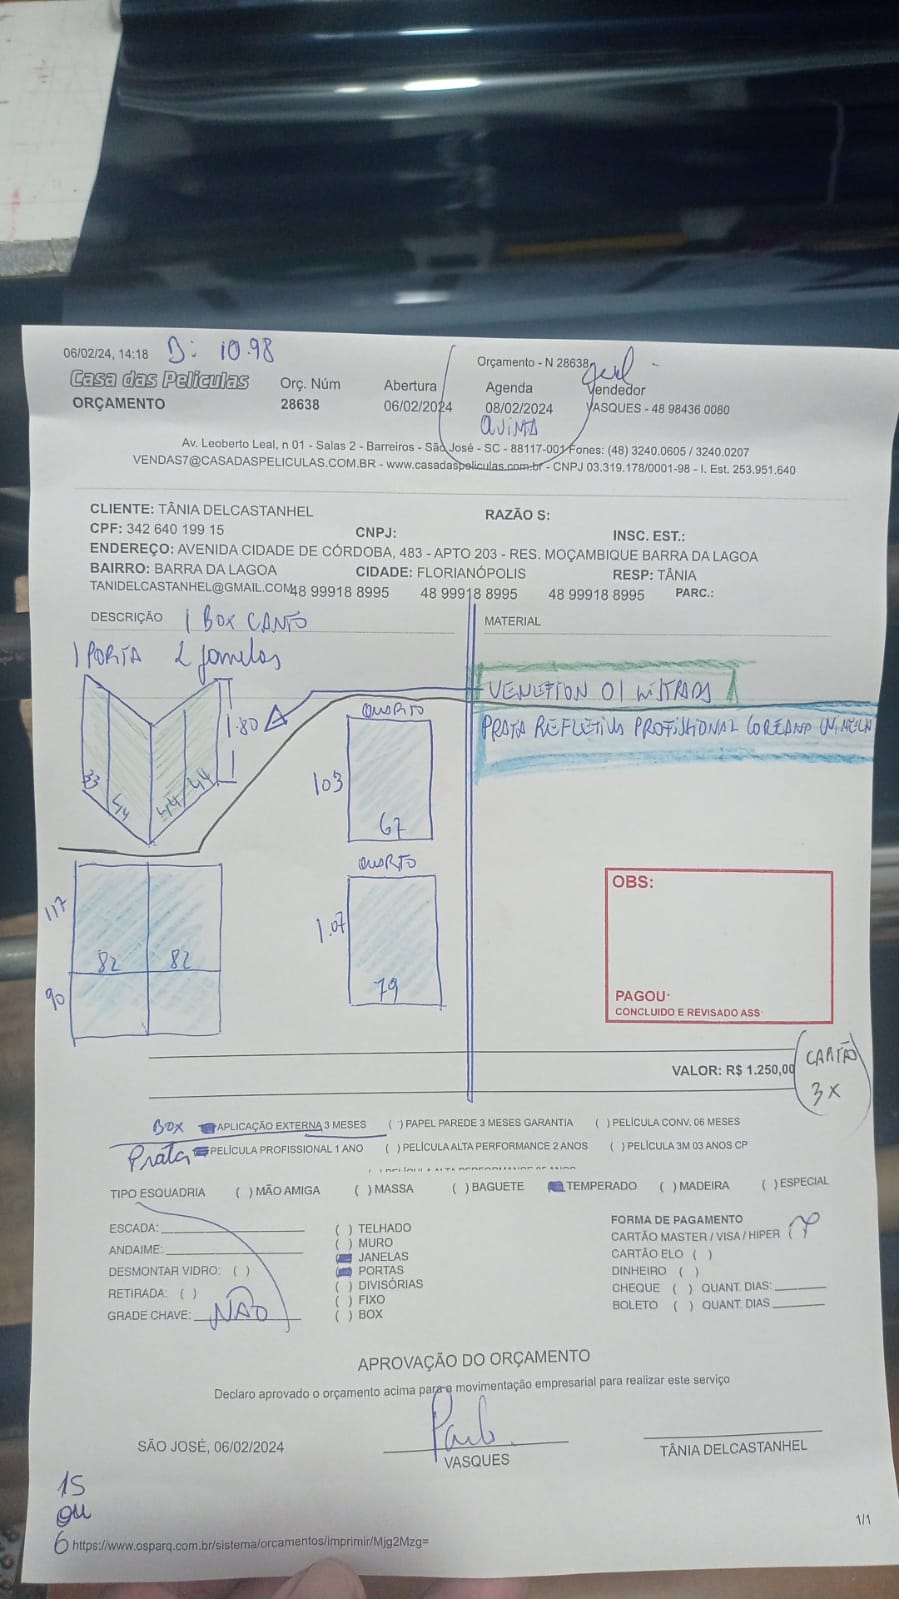 06/02/24, 14:18 B: 10.98
Orçamento - N 28638
Casa das Películas Orç. Núm Abertura Agenda Vendedor
ORÇAMENTO 28638 06/02/2024 08/02/2024 VASQUES - 48 98436 0080
QUINTA
Av. Leoberto Leal, n 01 - Salas 2 - Barreiros - São José - SC - 88117-001 Fones: (48) 3240.0605 / 3240.0207
VENDAS7@CASADASPELICULAS.COM.BR - www.casadaspeliculas.com.br - CNPJ 03.319.178/0001-98 - I. Est. 253.951.640
CLIENTE: TÂNIA DELCASTANHEL RAZÃO S:
CPF: 342 640 199 15 CNPJ: INSC. EST.:
ENDEREÇO: AVENIDA CIDADE DE CÓRDOBA, 483 - APTO 203 - RES. MOÇAMBIQUE BARRA DA LAGOA
BAIRRO: BARRA DA LAGOA CIDADE: FLORIANÓPOLIS RESP: TÂNIA
TANIDELCASTANHEL@GMAIL.COM 48 99918 8995 48 99918 8995 48 99918 8995 PARC.:
DESCRIÇÃO 1 BOX CANTO MATERIAL
1 PORTA 2 janelas
VENETION 01
PRATA REFLETIVA PROFISSIONAL COREANO
1.80
33 44 44 44
QUARTO
103
67
QUARTO
1.07
79
117
82 82
90
OBS:
PAGOU:
CONCLUIDO E REVISADO ASS:
VALOR: R$ 1.250,00 CARTÃO
3X
BOX APLICAÇÃO EXTERNA 3 MESES ( ) PAPEL PAREDE 3 MESES GARANTIA ( ) PELÍCULA CONV. 06 MESES
Prata PELÍCULA PROFISSIONAL 1 ANO ( ) PELÍCULA ALTA PERFORMANCE 2 ANOS ( ) PELÍCULA 3M 03 ANOS CP
TIPO ESQUADRIA ( ) MÃO AMIGA ( ) MASSA ( ) BAGUETE TEMPERADO ( ) MADEIRA ( ) ESPECIAL
ESCADA:
ANDAIME:
DESMONTAR VIDRO: ( )
RETIRADA: ( )
GRADE CHAVE: NÃO
( ) TELHADO
( ) MURO
JANELAS
PORTAS
( ) DIVISÓRIAS
( ) FIXO
( ) BOX
FORMA DE PAGAMENTO
CARTÃO MASTER / VISA / HIPER ( )
CARTÃO ELO ( )
DINHEIRO ( )
CHEQUE ( ) QUANT. DIAS:
BOLETO ( ) QUANT. DIAS
APROVAÇÃO DO ORÇAMENTO
Declaro aprovado o orçamento acima para a movimentação empresarial para realizar este serviço
SÃO JOSÉ, 06/02/2024
VASQUES
TÂNIA DELCASTANHEL
15
ou
6
https://www.osparq.com.br/sistema/orcamentos/imprimir/Mjg2Mzg=
1/1